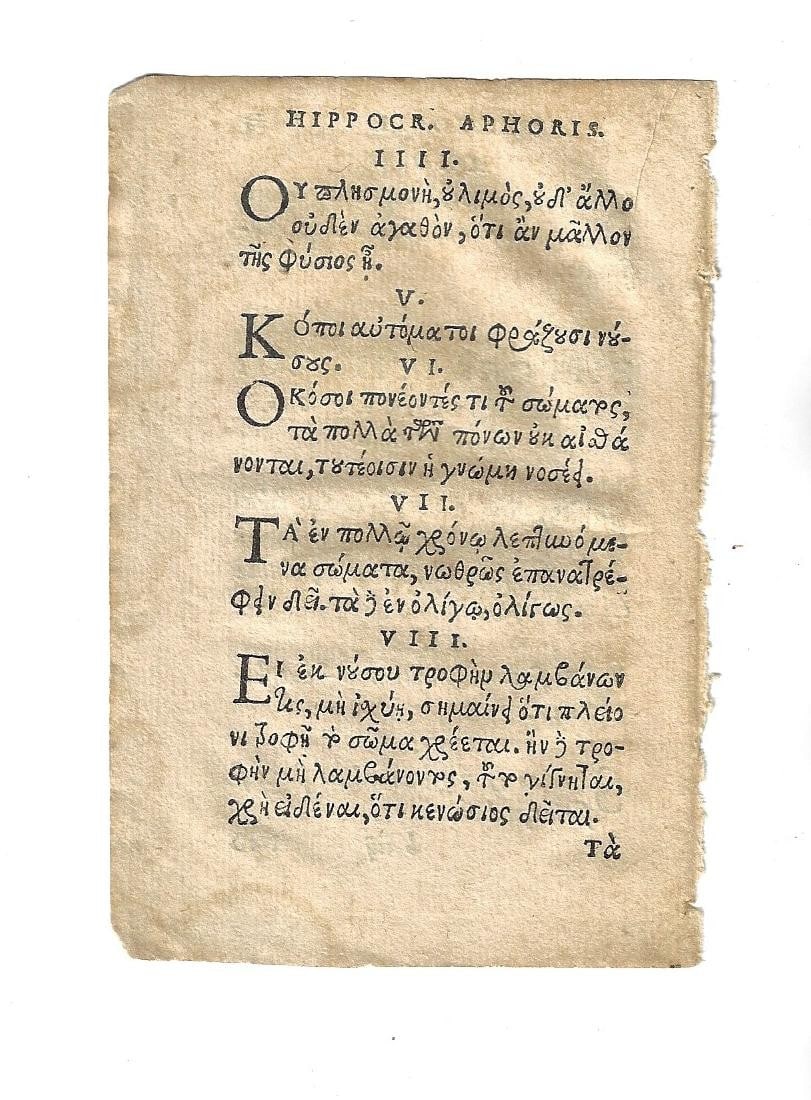 HIPPOCR. APHORIS.
IIII.
ΟΥ πλησμονὴ, ȣ̓ λιμὸς, ȣ̓δ' ἄλλο
οὐδὲν ἀγαθὸν, ὅτι ἂν μᾶλλον
τῆς φύσιος ᾖ.
V.
Κόποι αὐτόματοι φράζȣσι νȣ́-
σȣς. VI.
ΟΚόσοι πονέοντές τι τοῦ σώματος,
τὰ πολλὰ τῶν πόνων ȣ̓κ αἰσθά
νονται, τȣτέοισιν ἡ γνώμη νοσέει.
VII.
ΤᾺ ἐν πολλῷ χρόνῳ λεπτυνόμε-
να σώματα, νωθρῶς ἐπανατρέ-
φειν δεῖ. τὰ δὲ ἐν ὀλίγῳ, ὀλίγως.
VIII.
ΕΙ ἐκ νȣ́σου τροφὴν λαμβάνων
τις, μὴ ἰσχύῃ, σημαίνει ὅτι πλείο
νι τροφῇ τὸ σῶμα χρέεται. ἢν δὲ τρο-
φὴν μὴ λαμβάνοντος, τοῦτο γίγνηται,
χρὴ εἰδέναι, ὅτι κενώσιος δεῖται.
Τὰ